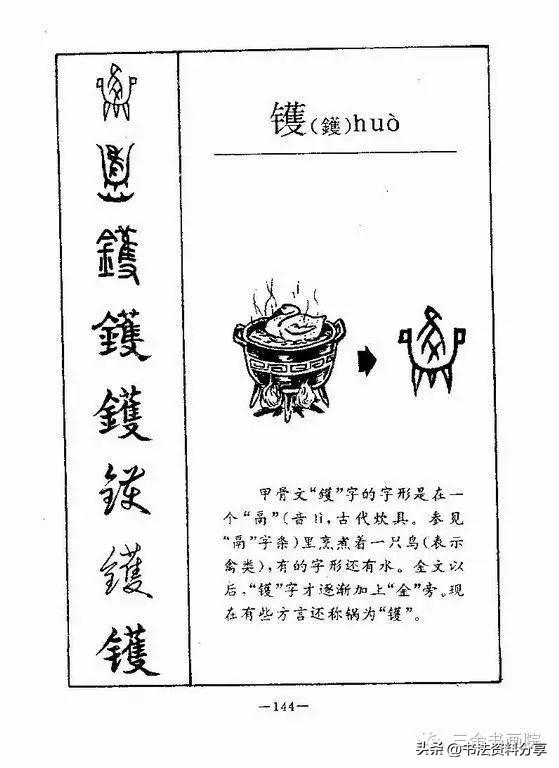 镬(鑊)huò
鑊
鑊
鑊
镬
鑊
镬
甲骨文“鑊”字的字形是在一
个“鬲”(音lì,古代炊具。参见
“鬲”字条)里烹煮着一只鸟(表示
禽类),有的字形还有水。金文以
后,“镬”字才逐渐加上“金”旁。现
在有些方言还称锅为“镬”。
—144—
三余书画院
头条 @书法资料分享